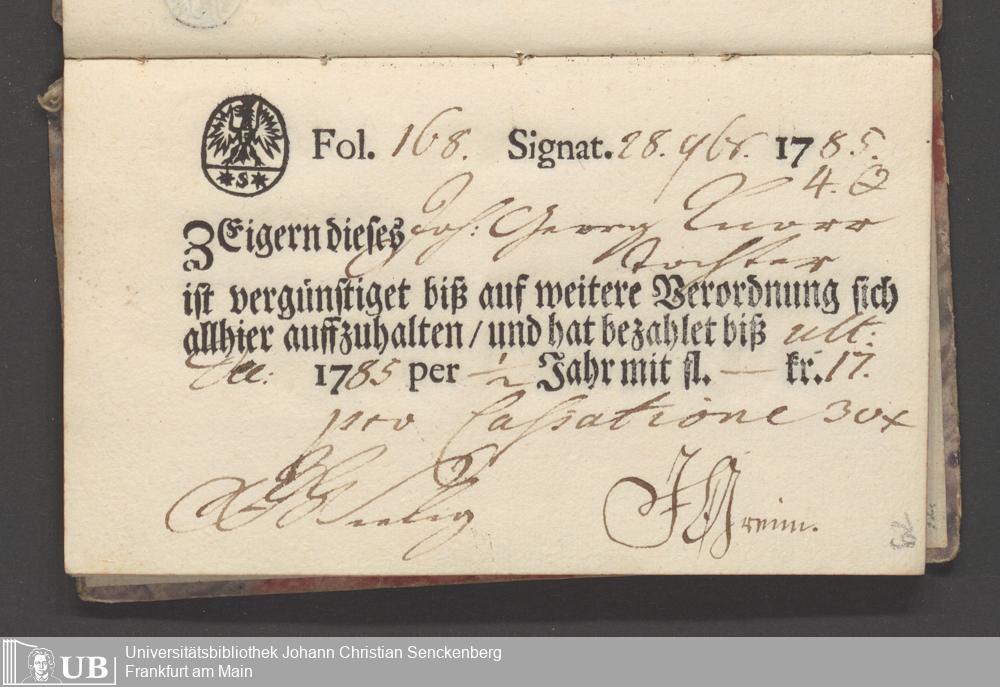 *S*
Fol. 168. Signat. 28. 9br. 1785.
4. Q
ZEigern dieses Joh: Georg Knorr
Tochter
ist vergünstiget biß auf weitere Verordnung sich
allhier auffzuhalten / und hat bezahlet biß ult:
Dec: 1785 per ½ Jahr mit fl. — kr. 17.
pro Cassatione 30x
JGreim.
UB Universitätsbibliothek Johann Christian Senckenberg
Frankfurt am Main